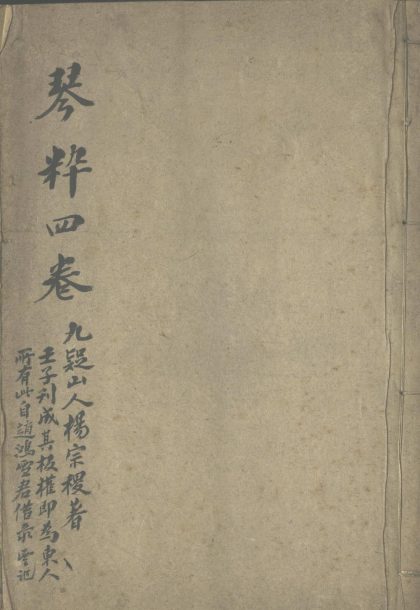 琴粹四卷
九疑山人楊宗稷著
壬子刋成其板權即為東人
所有此自逍鴻雪君借录雪沤